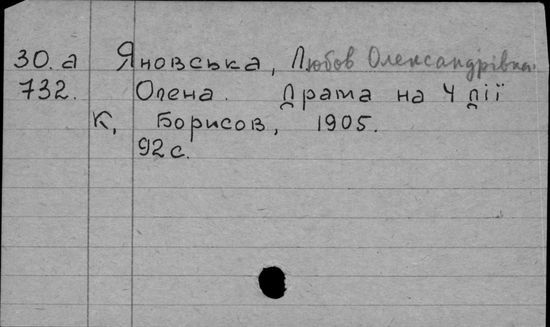 30.а Яновська, Любов Олександрівна.
732. Олена. Драма на 4 дії
К, Борисов, 1905.
92 с.